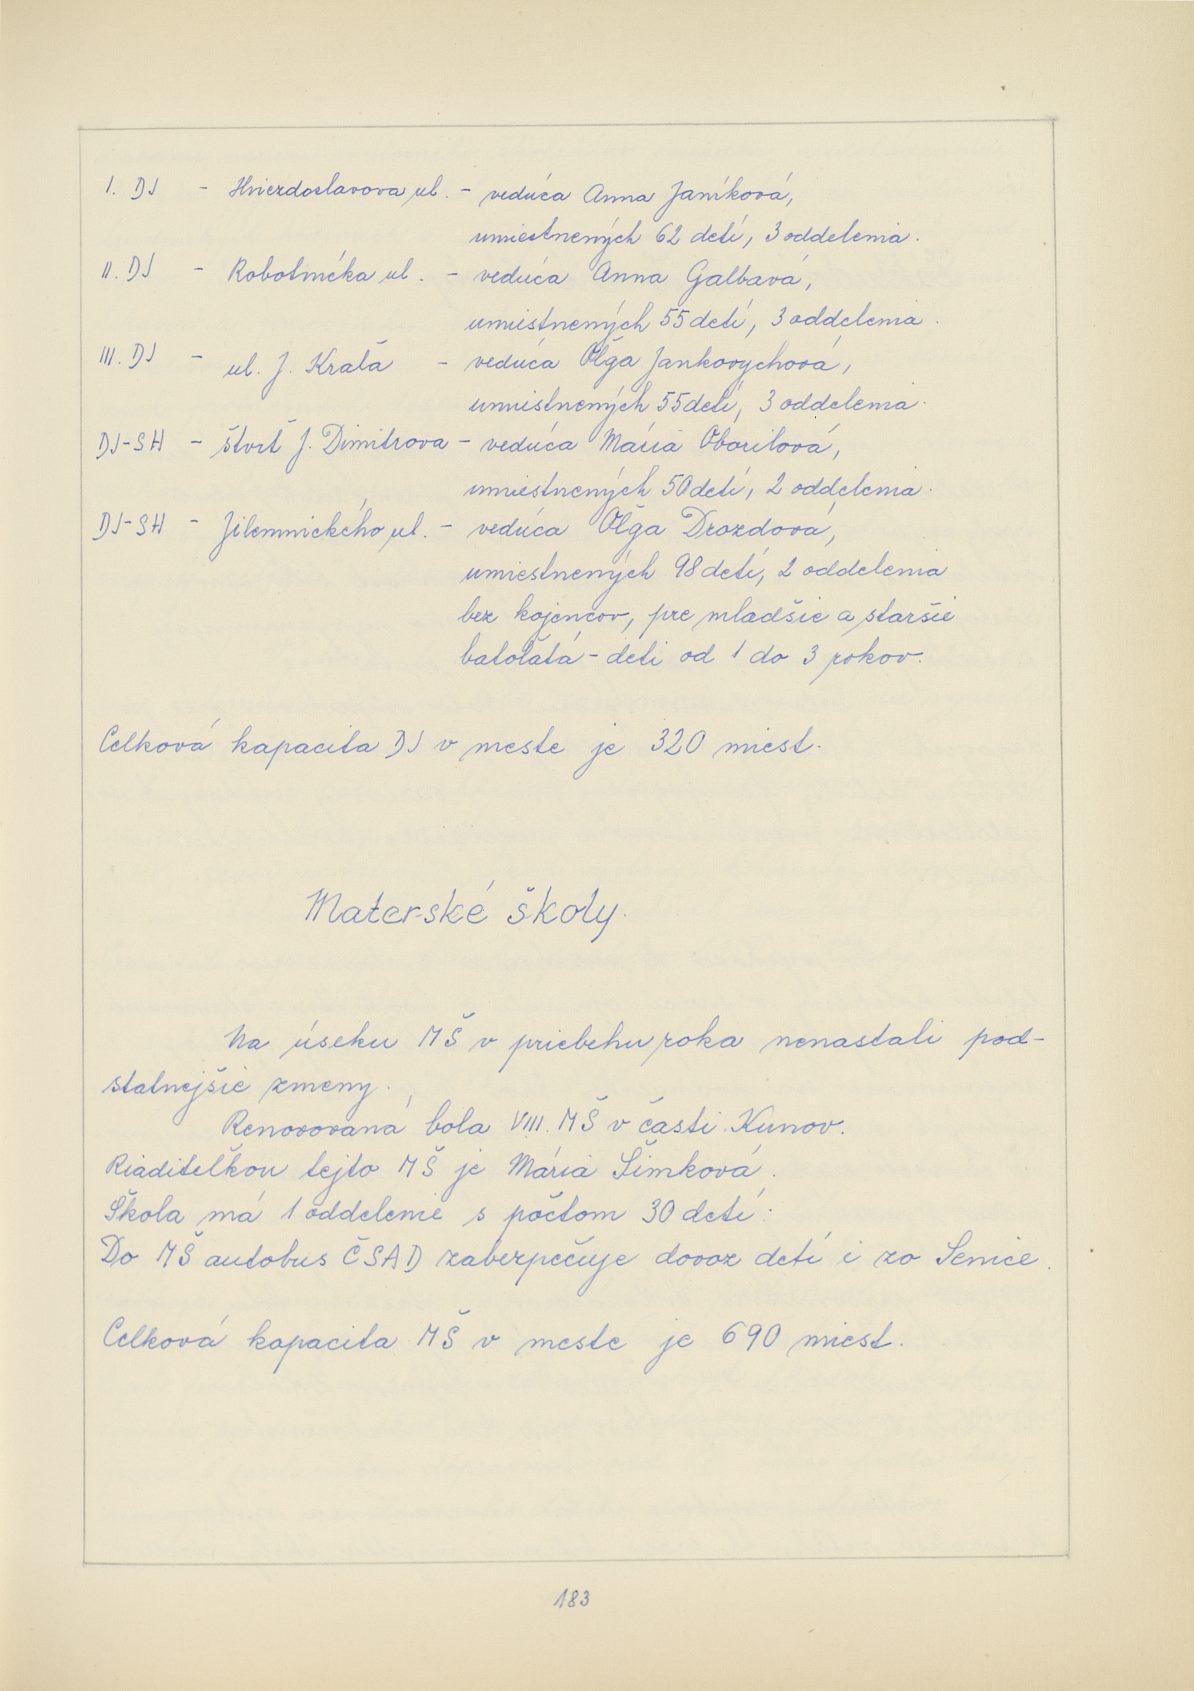 I. DJ - Hviezdoslavova ul. - vedúca Anna Janíková,
umiestnených 62 detí, 3 oddelenia.
II. DJ - Robotnícka ul. - vedúca Anna Galbavá,
umiestnených 55 detí, 3 oddelenia.
III. DJ - ul. J. Kráľa - vedúca Oľga Jankovychová,
umiestnených 55 detí, 3 oddelenia.
DJ-SH - štvrť J. Dimitrova - vedúca Mária Oborilová,
umiestnených 50 detí, 2 oddelenia.
DJ-SH - Jilemnického ul. - vedúca Oľga Drozdová,
umiestnených 98 detí, 2 oddelenia
bez kojencov, pre mladšie a staršie
batoľatá - deti od 1 do 3 rokov.
Celková kapacita DJ v meste je 320 miest.
Materské školy.
Na úseku MŠ v priebehu roka nenastali pod-
statnejšie zmeny.
Renovovaná bola VIII. MŠ v časti Kunov.
Riaditeľkou tejto MŠ je Mária Šimková.
Škola má 1 oddelenie s počtom 30 detí.
Do MŠ autobus ČSAD zabezpečuje dovoz detí i zo Senice.
Celková kapacita MŠ v meste je 690 miest.
183